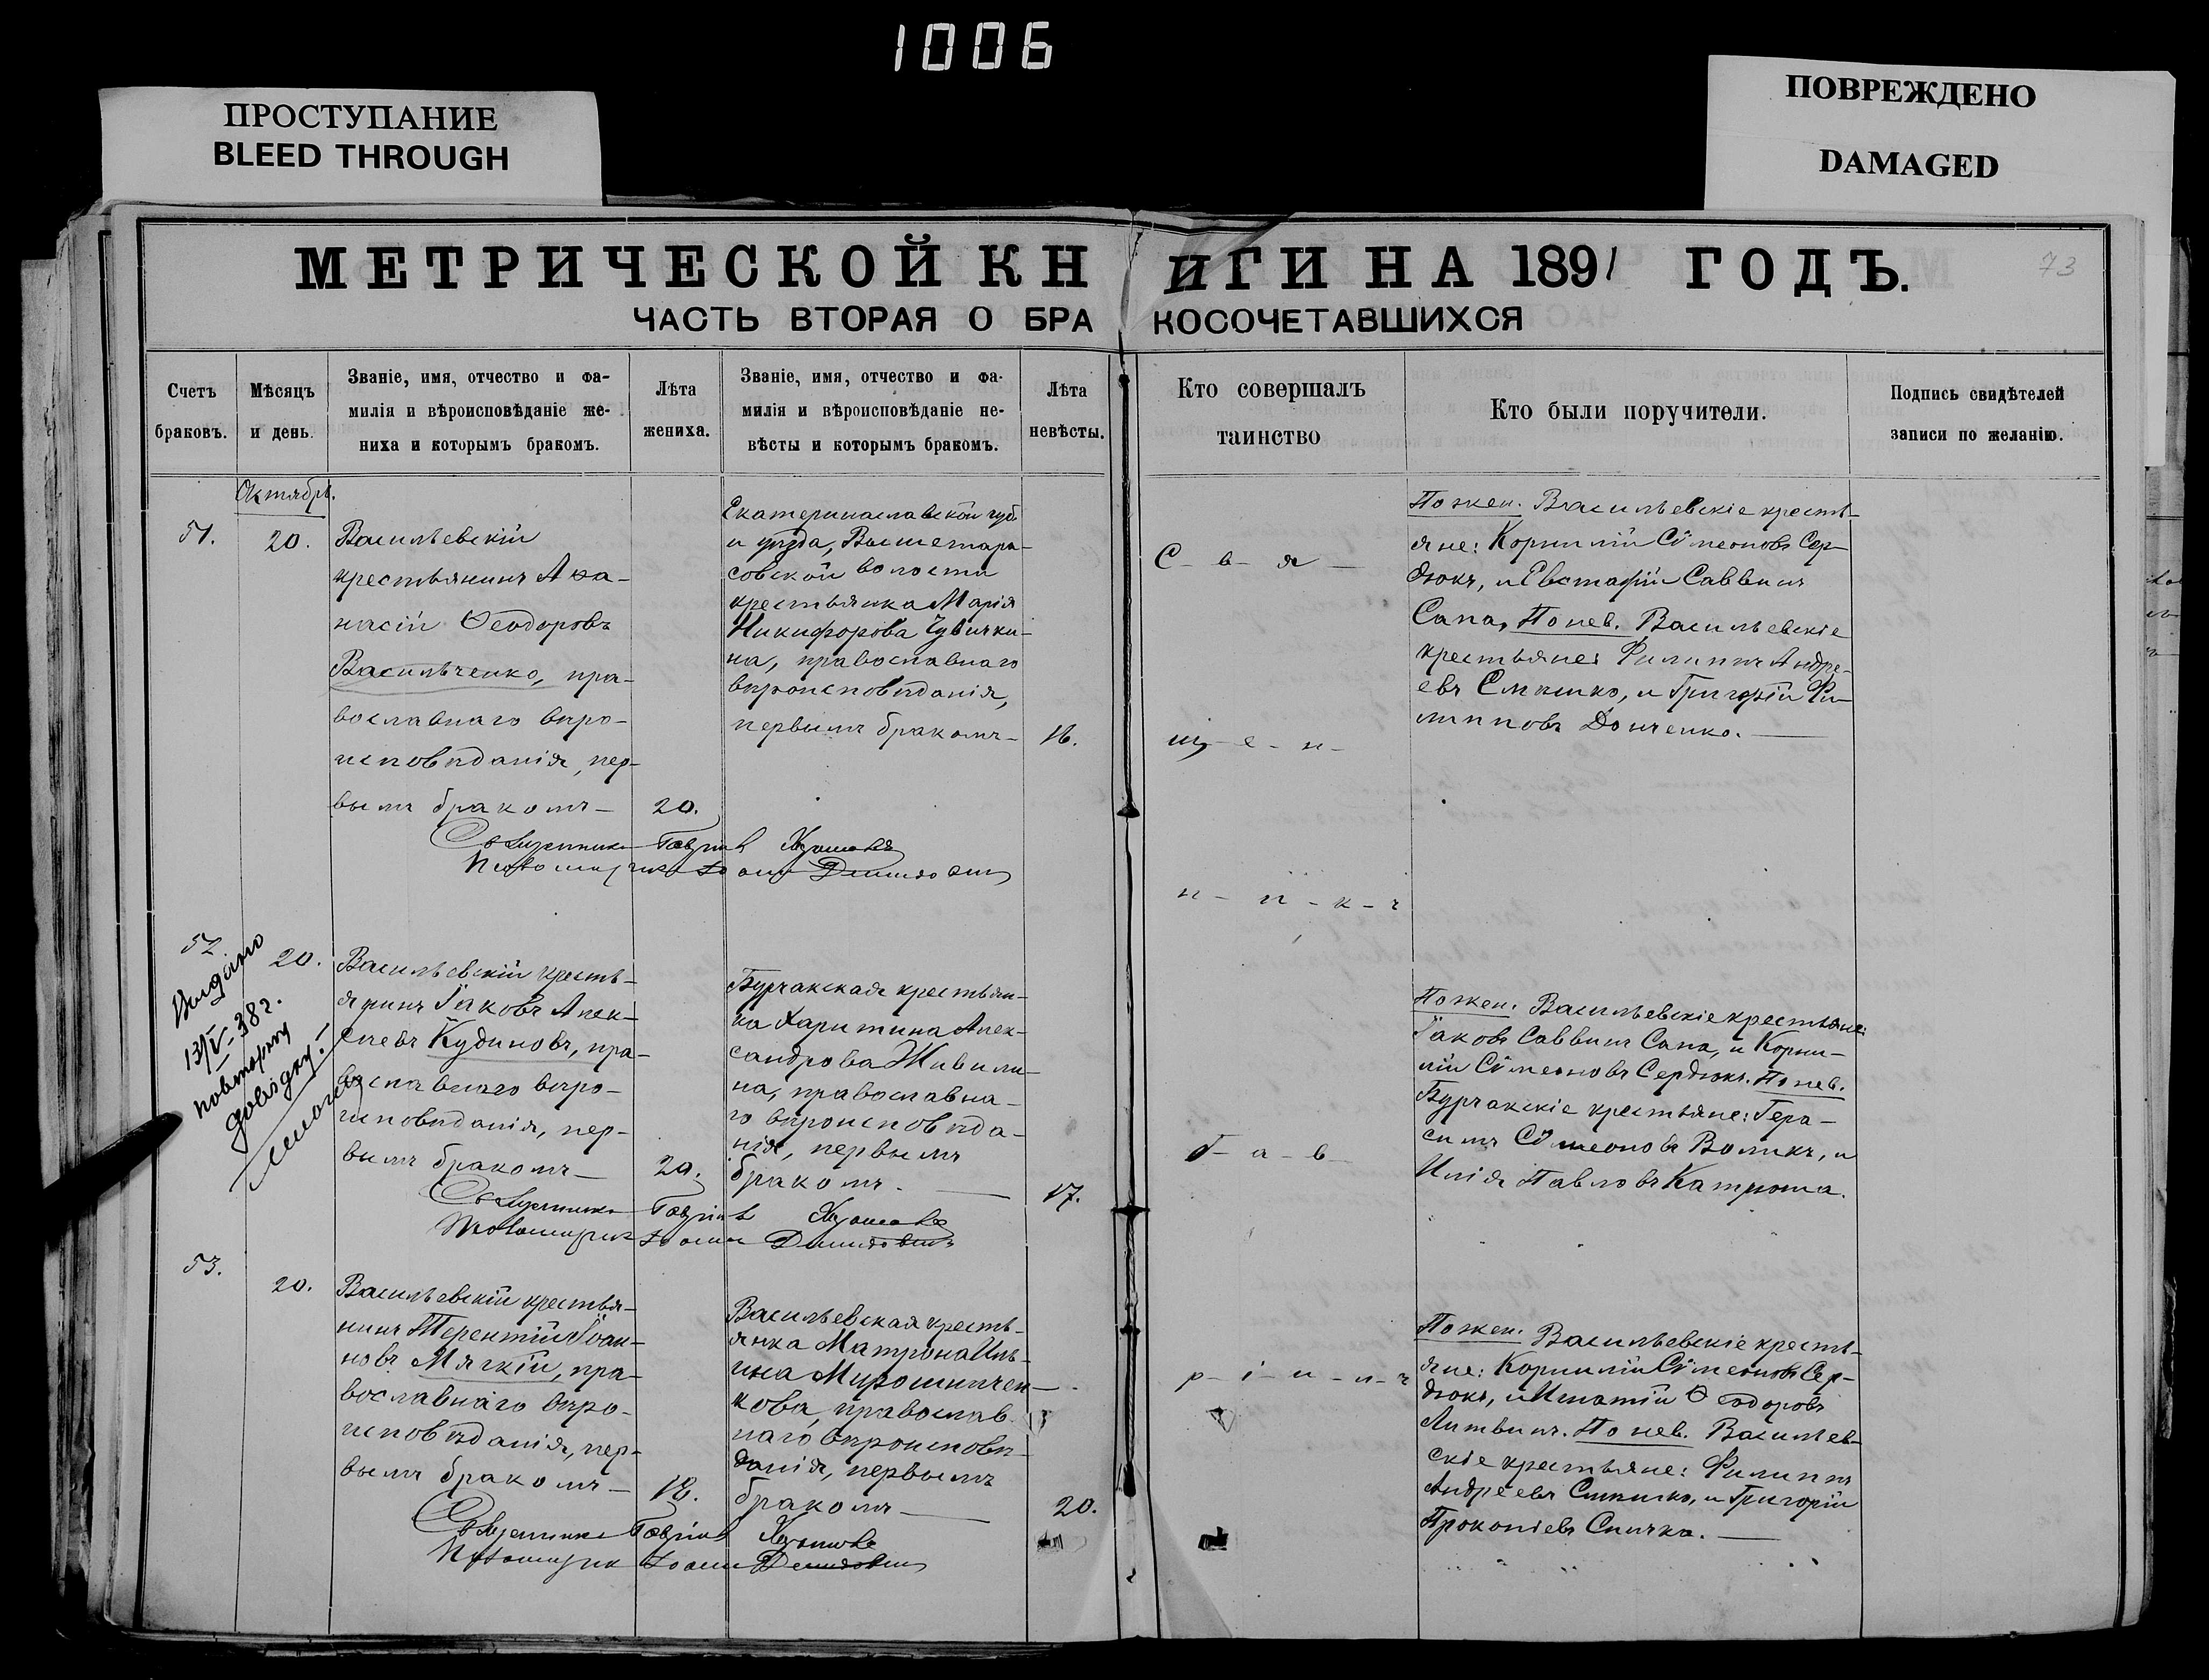 1006
ПРОСТУПАНИЕ
BLEED THROUGH
ПОВРЕЖДЕНО
DAMAGED
МЕТРИЧЕСКОЙ КНИГИ НА 1891 ГОДЪ.
73
ЧАСТЬ ВТОРАЯ О БРАКОСОЧЕТАВШИХСЯ
Счетъ
браковъ.
Мѣсяцъ
и день.
Званіе, имя, отчество и фа-
милія и вѣроисповѣданіе же-
ниха и которымъ бракомъ.
Лѣта
жениха.
Званіе, имя, отчество и фа-
милія и вѣроисповѣданіе не-
вѣсты и которымъ бракомъ.
Лѣта
невѣсты.
Кто совершалъ
таинство
Кто были поручители.
Подпись свидѣтелей
записи по желанію.
Октябрь.
51.
20.
Васильевскій
крестьянинъ Аѳа-
насій Ѳеодоровъ
Васильченко, пра-
вославнаго вѣро-
исповѣданія, пер-
вымъ бракомъ —
20.
Екатеринославской губ.
и уѣзда, Вышетара-
совской волости
крестьянка Марія
Никифорова Чувички-
на, православнаго
вѣроисповѣданія,
первымъ бракомъ —
16.
Священникъ Гавріилъ
Псаломщикъ Іоаннъ
С - в - я -
щ - е - н -
н - и - к - ъ
Г - а - в -
р - і - и - л - ъ
По жен. Васильевскіе кресть-
яне: Корнилій Сѵмеоновъ Сер-
дюкъ, и Евстафій Саввинъ
Сапа, По нев. Васильевскіе
крестьяне: Филиппъ Андре-
евъ Смишко, и Григорій Фи-
липповъ Донченко. —
52.
20.
Видано
13/V-38 г.
повторну
довідку.
Васильевскій кресть-
янинъ Іаковъ Алек-
сѣевъ Кудиновъ, пра-
вославнаго вѣро-
исповѣданія, пер-
вымъ бракомъ —
20.
Бурчакская крестьян-
ка Харитина Алек-
сандрова Живили-
на, православна-
го вѣроисповѣда-
нія, первымъ
бракомъ. —
17.
Священникъ Гавріилъ
Псаломщикъ Іоаннъ
По жен. Васильевскіе крестьяне:
Іаковъ Саввинъ Сапа, и Корни-
лій Сѵмеоновъ Сердюкъ. По нев.
Бурчакскіе крестьяне: Гера-
симъ Сѵмеоновъ Воликъ, и
Илія Павловъ Катрюша.
53.
20.
Васильевскій крестья-
нинъ Терентій Іоан-
новъ Мягкій, пра-
вославнаго вѣро-
исповѣданія, пер-
вымъ бракомъ —
18.
Васильевская кресть-
янка Матрона Иль-
ина Мирошничен-
кова, православ-
наго вѣроисповѣ-
данія, первымъ
бракомъ —
20.
Священникъ Гавріилъ
Псаломщикъ Іоаннъ
По жен. Васильевскіе кресть-
яне: Корнилій Сѵмеоновъ Сер-
дюкъ, и Игнатій Ѳеодоровъ
Литвинъ. По нев. Васильев-
скіе крестьяне: Филиппъ
Андреевъ Смишко, и Григорій
Прокопіевъ Спичка. —